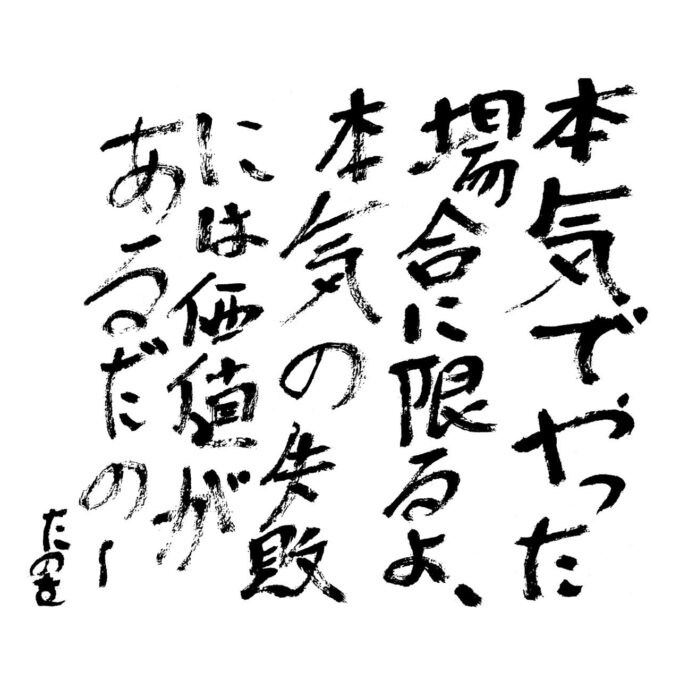 本気でやった
場合に限るよ、
本気の失敗
には価値が
あるだのー